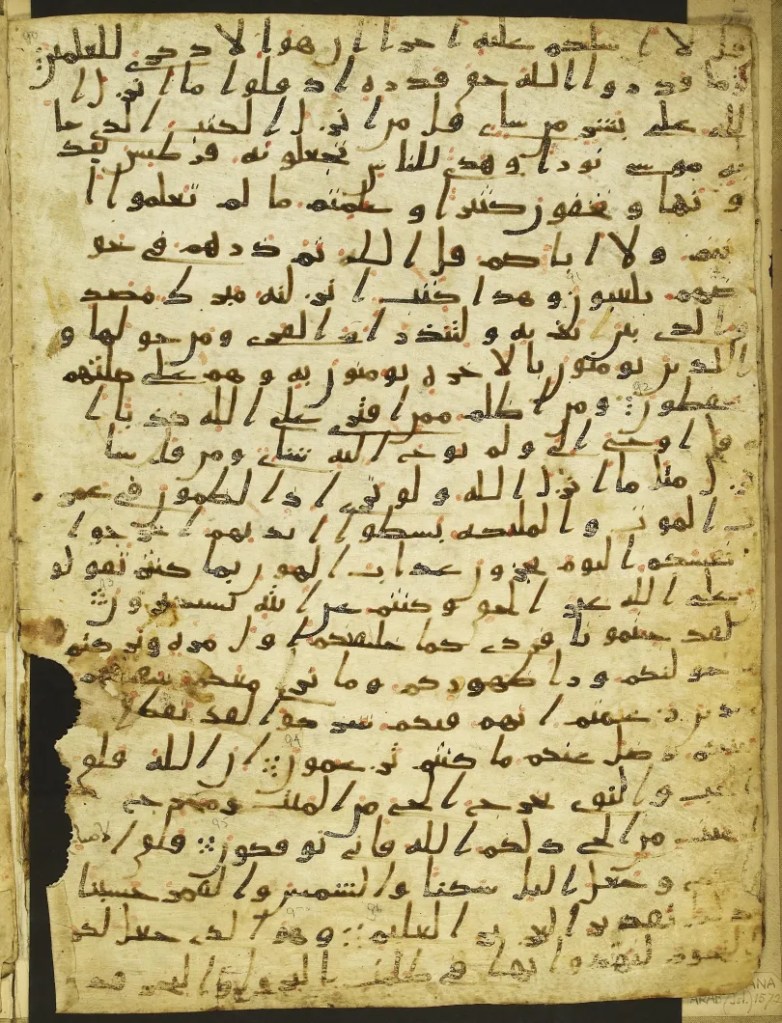 قل لا اسلكم عليه اجرا ان هوا الا ذكرى للعلمين
وما قدروا الله حق قدره اذ قلوا ما انزل ا
لله على بشر من شاى قل من انزل الكتب الذى جا
به موسى نورا وهدى للناس تجعلونه قرطيس تبد
ونها و تخفون كثيرا و علمتم ما لم تعلموا ا
نتم ولا اباكم قل الله ثم ذرهم فى خو
ضهم يلعبون وهذا كتب انزلنه مبرك مصد
ق الذى بين يديه ولتنذر ام القرى ومن حولها و
الذين يومنون بالاخره يومنون به وهم على صلتهم
يحفظون ومن اظلم ممن افترى على الله كذبا ا
و قل اوحى الى ولم يوحى اليه شاى ومن قل سا
نزل مثل ما انزل الله ولو ترى اذ الظلمون فى غمر
ت الموت والمليكه بسطوا ايديهم اخرجوا
انفسكم اليوم تجزون عذاب الهون بما كنتم تقولو
ن على الله غير الحق وكنتم عن ايته تستكبرون
لقد جيتمونا فردى كما خلقنكم اول مره وتركتم
خولنكم ورا ظهوركم وما نرى معكم
زعمتم انهم فيكم شركوا لقد تقطع
وضل عنكم ما كنتم تزعمون ان الله فلق
الحب والنوى يخرج الحى من الميت ومخرج
لميت من الحى ذلكم الله فانى توفكون فلق الاصبا
ح وجعل اليل سكنا والشمس والقمر حسبنا
ذلك تقدير العزيز العليم وهو الذى جعل لكم
النجوم لتهتدوا بها فى ظلمت البر والبحر قد